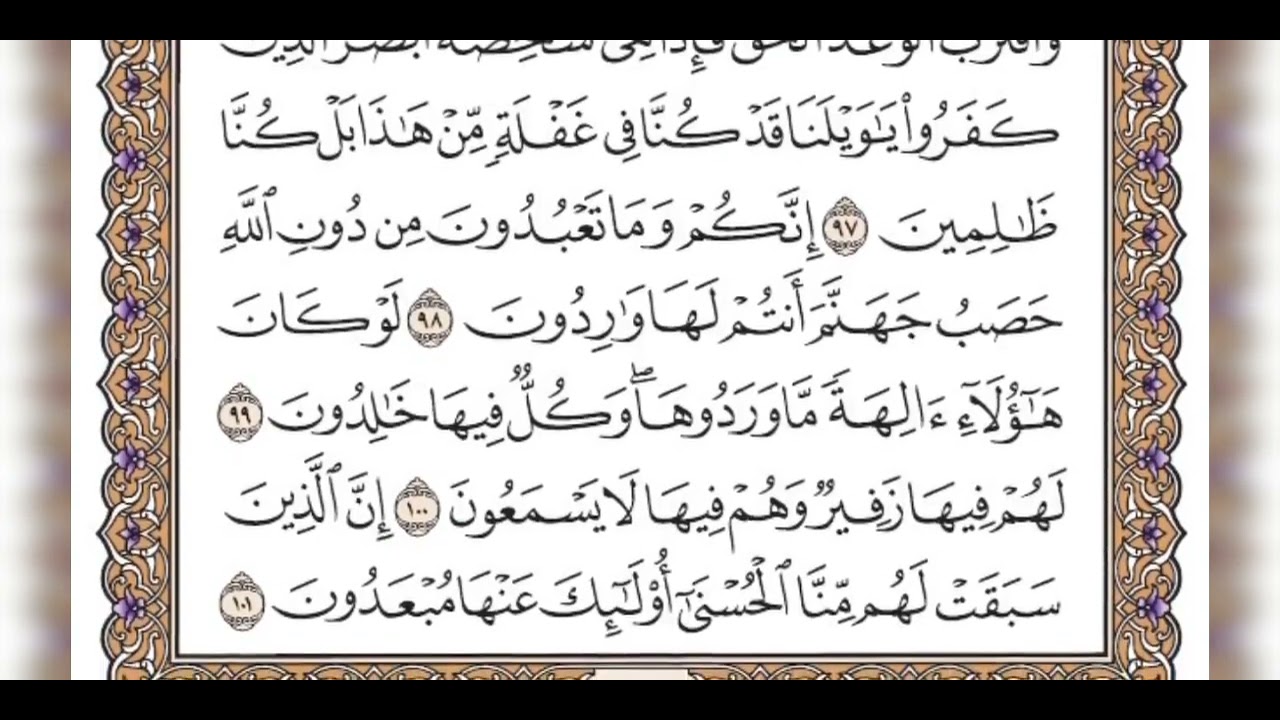 وَٱقْتَرَبَ ٱلْوَعْدُ ٱلْحَقُّ فَإِذَا هِىَ شَٰخِصَةٌ أَبْصَٰرُ ٱلَّذِينَ
كَفَرُوا۟ يَٰوَيْلَنَا قَدْ كُنَّا فِى غَفْلَةٍ مِّنْ هَٰذَا بَلْ كُنَّا
ظَٰلِمِينَ ٩٧ إِنَّكُمْ وَمَا تَعْبُدُونَ مِن دُونِ ٱللَّهِ
حَصَبُ جَهَنَّمَ أَنتُمْ لَهَا وَٰرِدُونَ ٩٨ لَوْ كَانَ
هَٰٓؤُلَآءِ ءَالِهَةً مَّا وَرَدُوهَا ۖ وَكُلٌّ فِيهَا خَٰلِدُونَ ٩٩
لَهُمْ فِيهَا زَفِيرٌ وَهُمْ فِيهَا لَا يَسْمَعُونَ ١٠٠ إِنَّ ٱلَّذِينَ
سَبَقَتْ لَهُم مِّنَّا ٱلْحُسْنَىٰٓ أُو۟لَٰٓئِكَ عَنْهَا مُبْعَدُونَ ١٠١